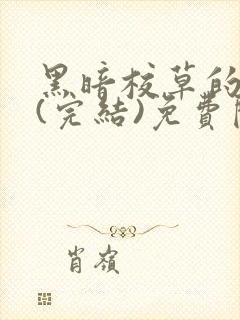 黑暗校草的
(完結)免費
肖嶺